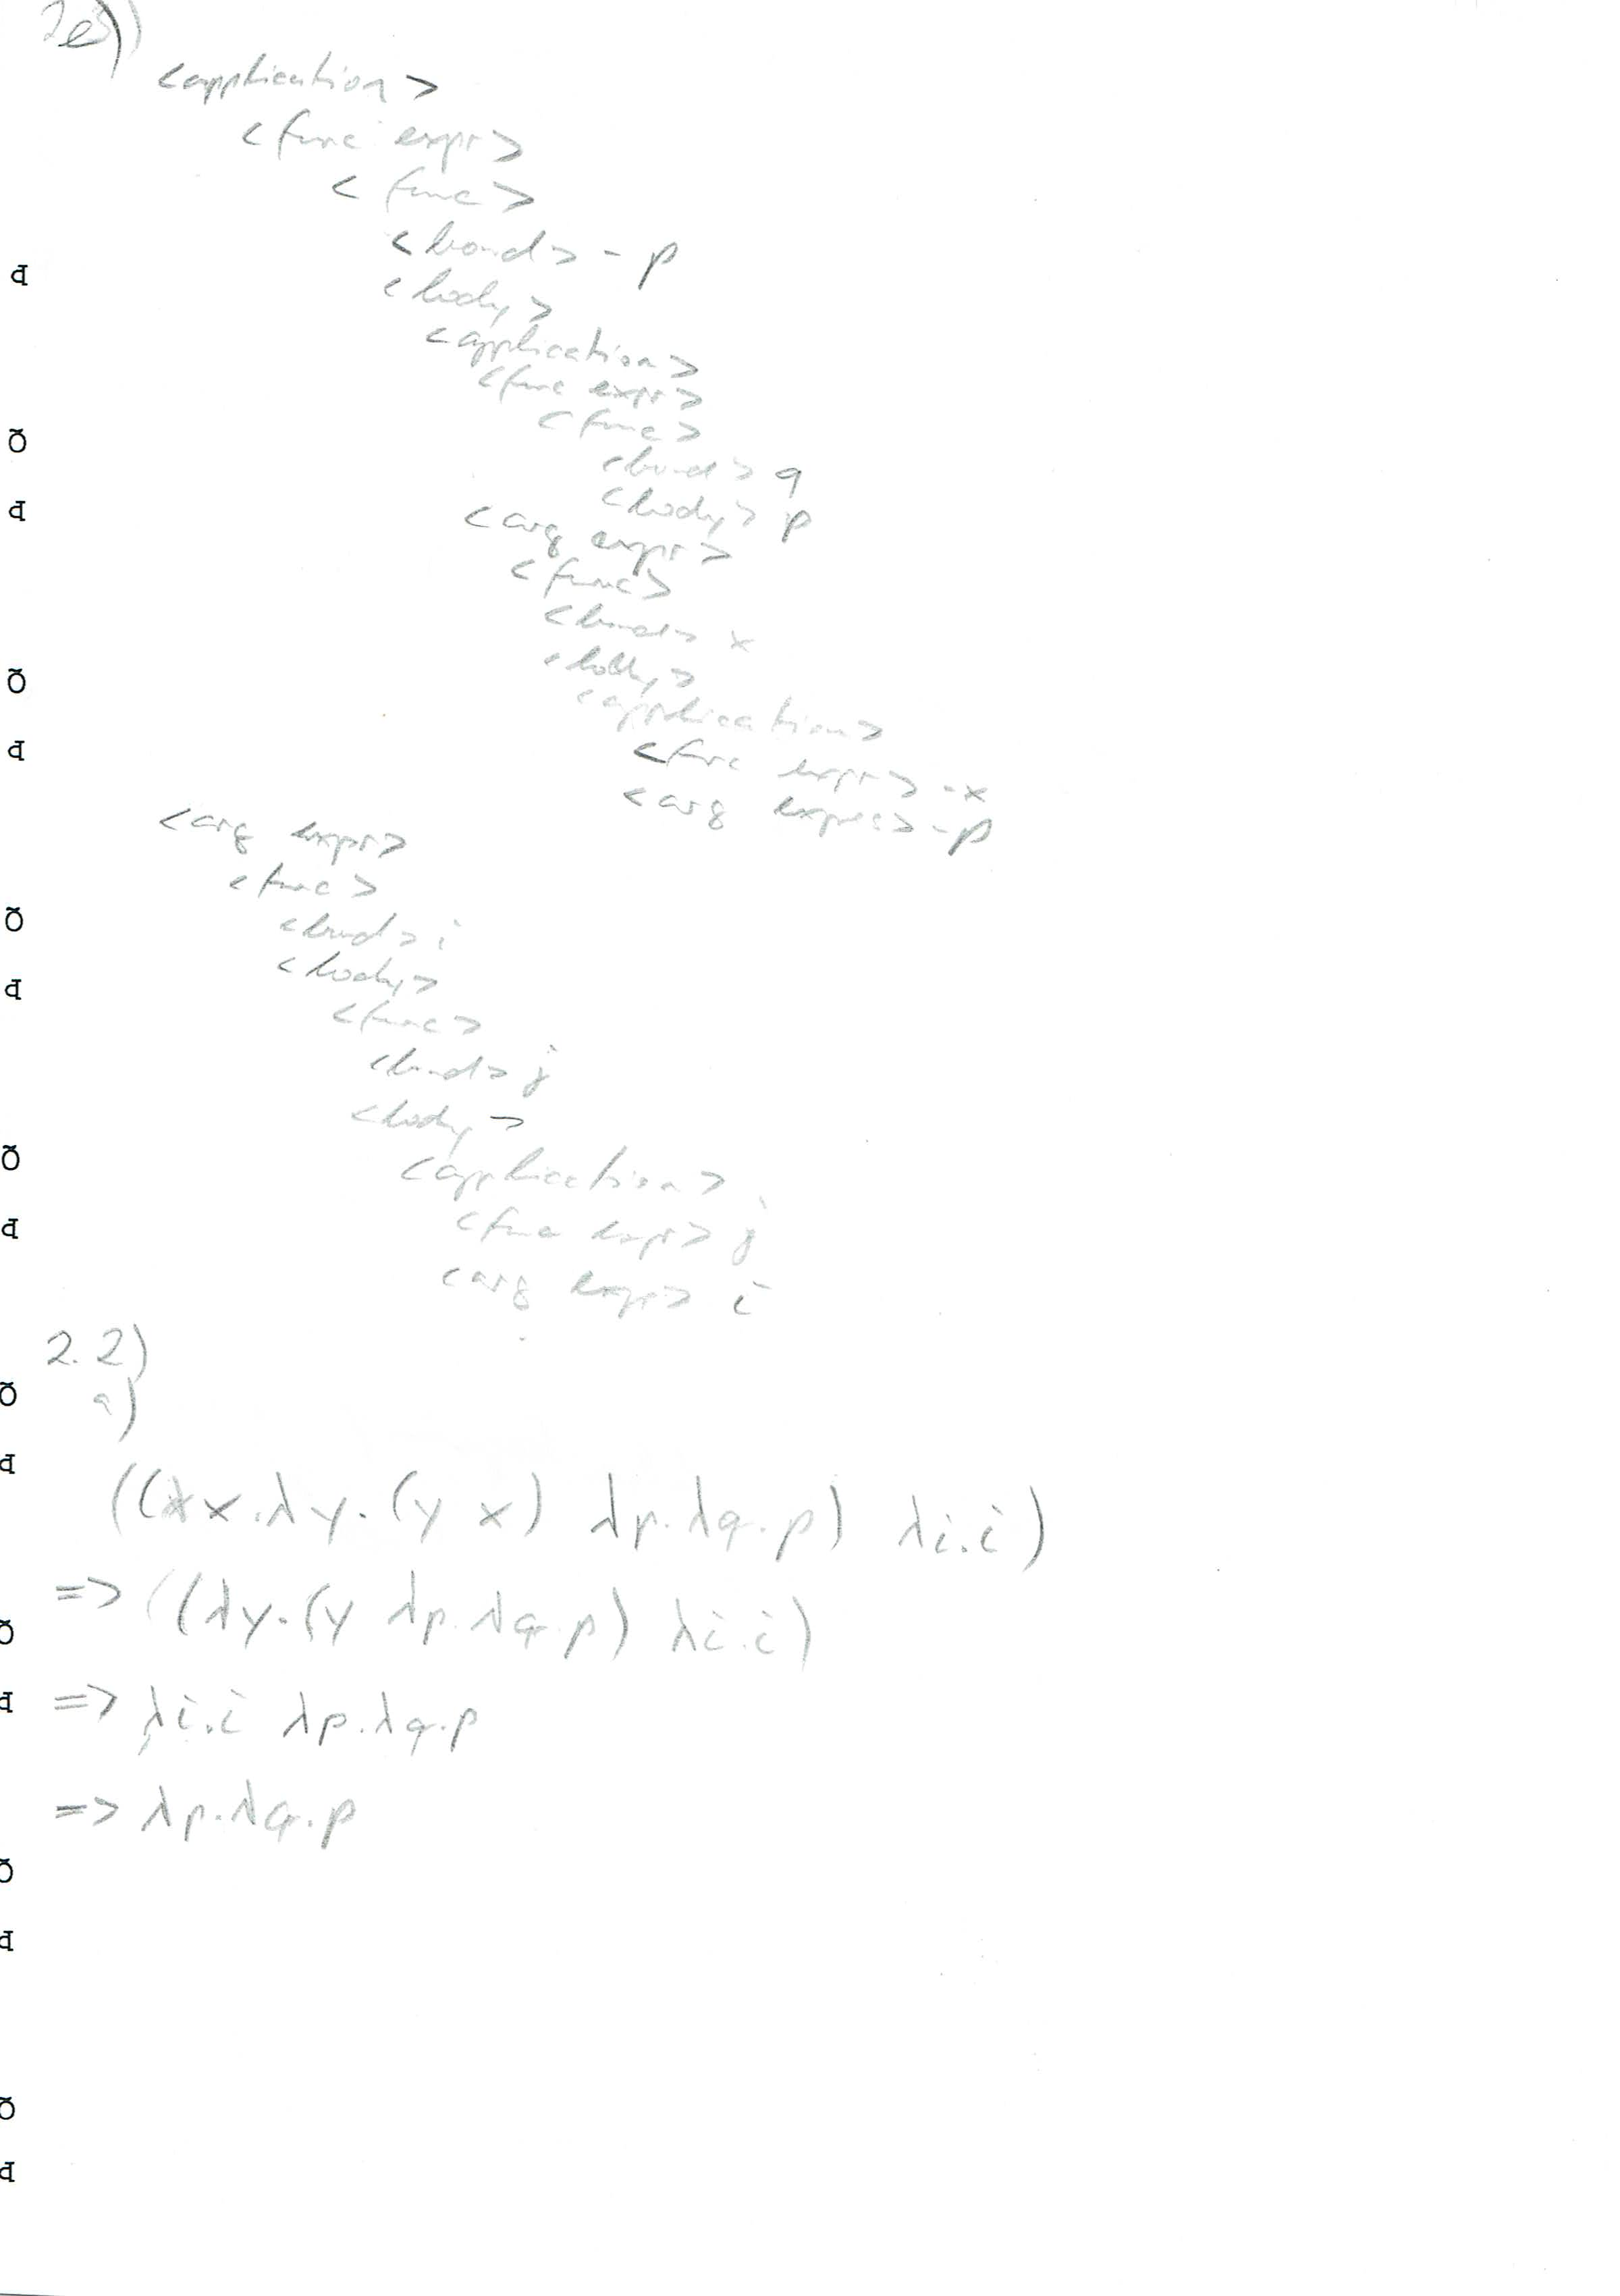 2e)
<application>
<func expr>
<func>
<bound> - p
<body>
<application>
<func expr>
<func>
<bound> q
<body> p
<arg expr>
<func>
<bound> x
<body>
<application>
<func expr> - x
<arg expr> - p
<arg expr>
<func>
<bound> i
<body>
<func>
<bound> j
<body>
<application>
<func expr> j
<arg expr> i
2.2)
a)
((λx.λy.(y x) λp.λq.p) λi.i)
=> ((λy.(y λp.λq.p) λi.i)
=> λi.i λp.λq.p
=> λp.λq.p